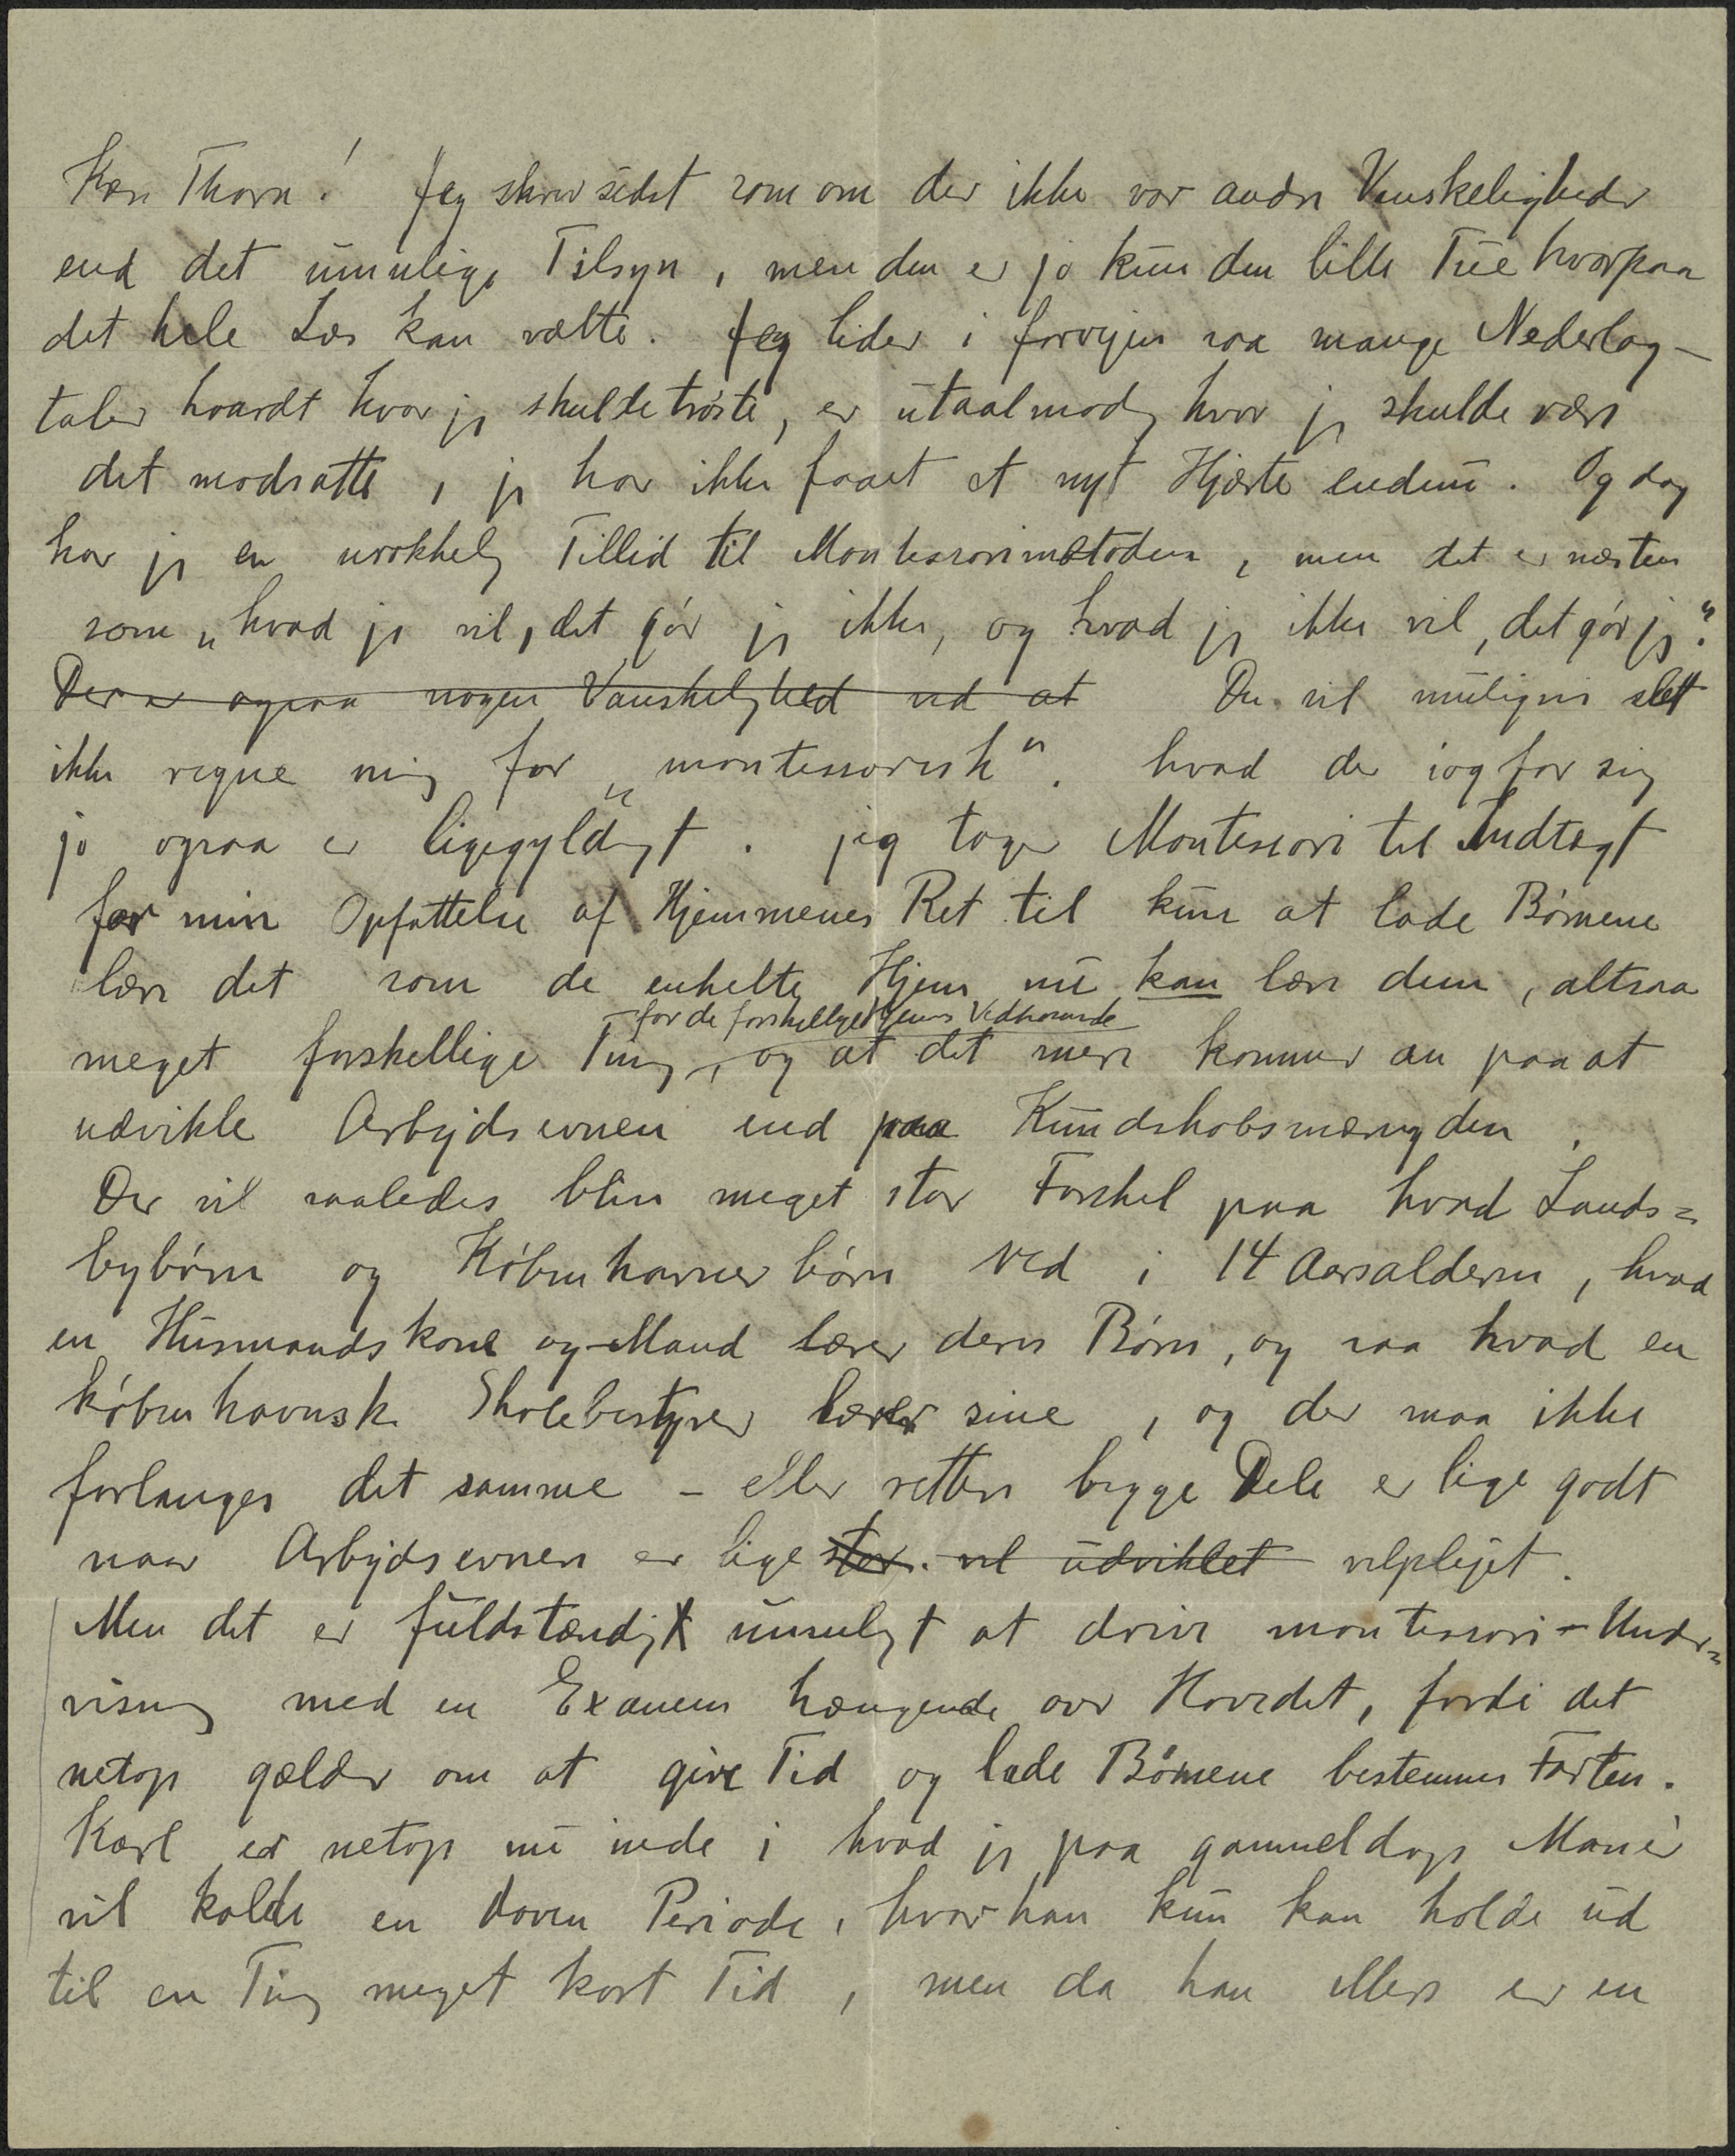 Kære Thora! Jeg skrev sidst som om der ikke var andre Vanskeligheder
end det umulige Tilsyn, men den er jo kun den lille Tue hvorpaa
det hele Læs kan vælte. Jeg lider i forvejen saa mange Nederlag –
taler haardt hvor jeg skulde trøste, er utaalmodig hvor jeg skulde være
det modsatte, jeg har ikke faaet et nyt Hjærte endnu. Og dog
har jeg en urokkelig Tillid til Montessorimetoden, men det er næsten
som „hvad jeg vil, det gør jeg ikke, og hvad jeg ikke vil, det gør jeg“.
Der er ogsaa nogen Vanskelighed ved at Du vil muligvis slet
ikke regne mig for „montessorisk“. hvad der i og for sig
jo ogsaa er ligegyldigt. jeg tager Montessori til Indtægt
for min Opfattelse af Hjemmenes Ret til kun at lade Børnene
lære det som de enkelte Hjem nu kan lære dem, altsaa
for de forskellige Hjems Vedkommende
meget forskellige Ting, og at det mere kommer an paa at
udvikle Arbejdsevnen end paa Kundskabsmængden.
Der vil saaledes blive meget stor Forskel paa hvad Lands=
bybørn og Københavnerbørn ved i 14 Aarsalderen, hvad
en Husmandskone og-Mand lærer deres Børn, og saa hvad en
københavnsk Skolebestyrer lærer sine, og der maa ikke
forlanges det samme – eller rettere begge Dele er lige godt
naar Arbejdsevnen er lige stor. vel udviklet velplejet.
Men det er fuldstændigt umuligt at drive montessori-Under=
visning med en Examen hængende over Hovedet, fordi det
netop gælder om at give Tid og lade Børnene bestemme Farten.
Karl er netop nu inde i hvad jeg paa gammeldags Manér
vil kalde en doven Periode, hvor han kun kan holde ud
til en Ting meget kort Tid, men da han ellers er en